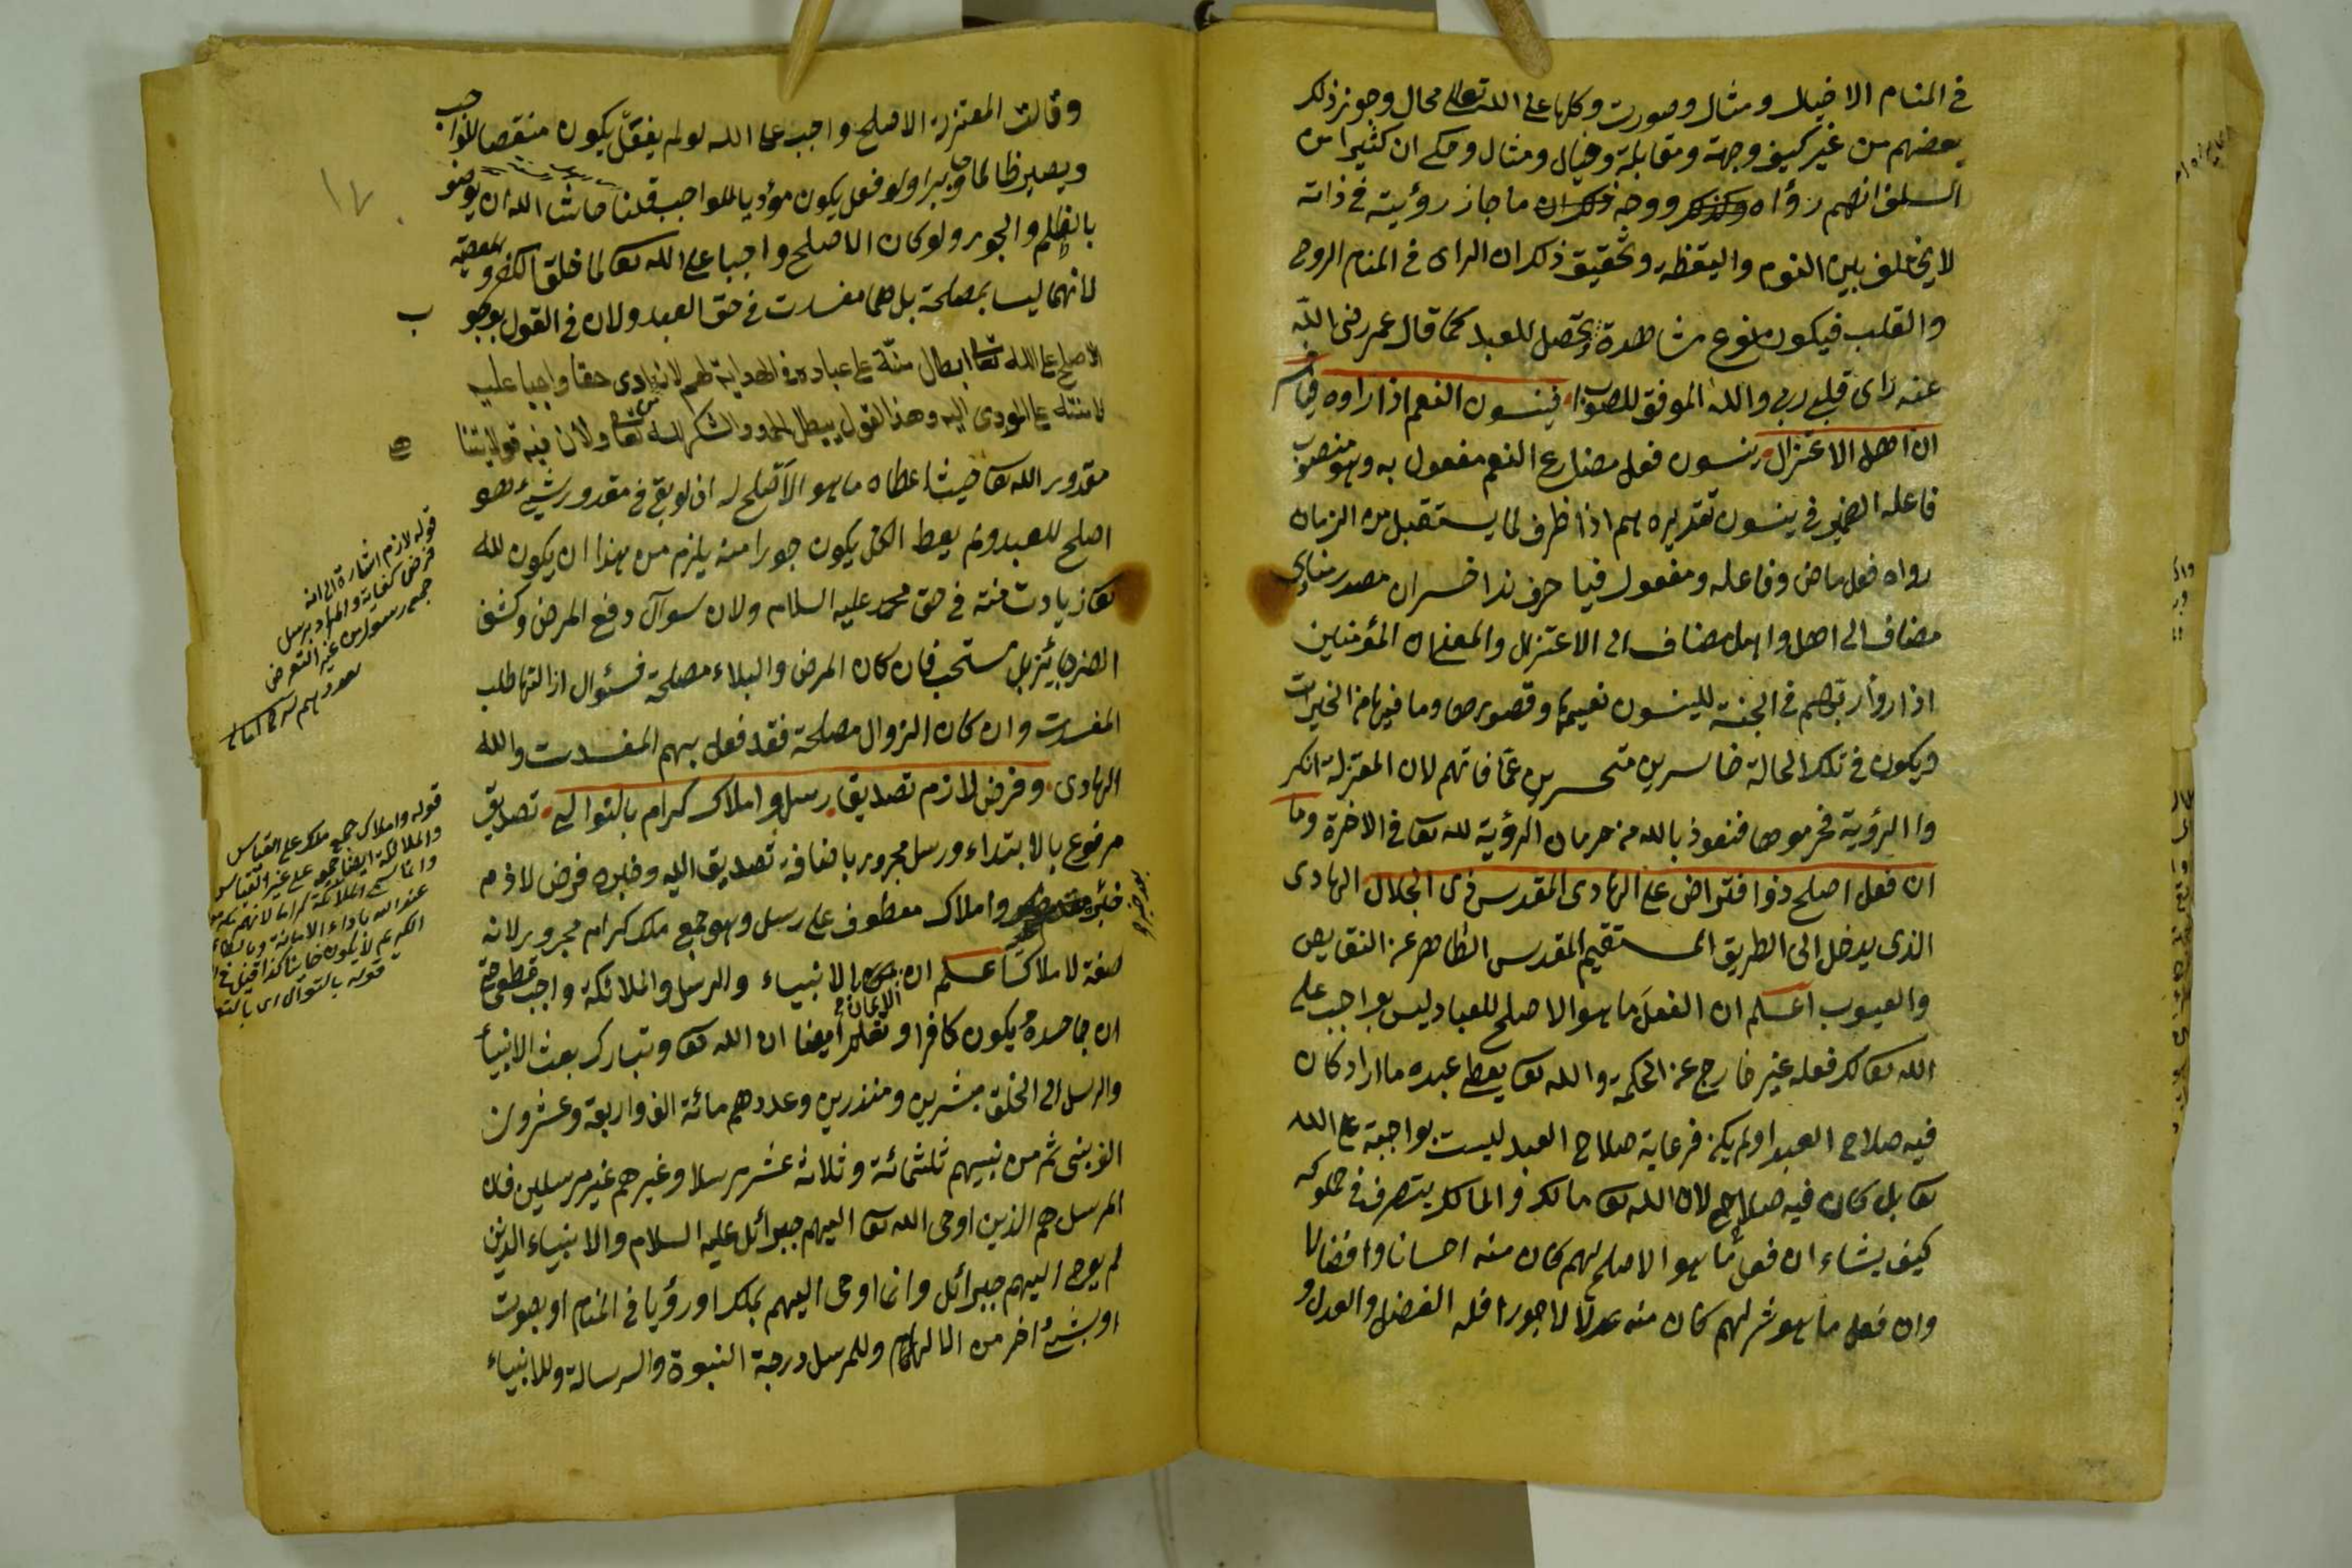 في المنام الا خيال ومثال وصورت وكلها على الله تعالى محال وجوز ذلك
بعضهم من غير كيف وجهة ومقابلة وخيال ومثال وحكي ان كثيرا من
السلف انهم رؤاه ووجه ذلك ان ما جاز رؤيته في ذاته
لا يختلف بين النوم واليقظه وتحقيق ذلك ان الرأي في المنام الروح
والقلب فيكون نوع مشاهدة يحصل للعبد كما قال عمر رضى الله
عنه رأى قلبي ربي والله الموفق للصواب فينسون النعم اذا راوه فيا خسر
ان اهل الاعتزال ينسون فعل مضارع النعم مفعول به وهو منصوب
فاعله الضمير في ينسون تقديره هم اذا ظرف لما يستقبل من الزمان
رواه فعل ماض وفاعله ومفعول فيا حرف ندا خسران مصدر منادى
مضاف الى اهل واهل مضاف الى الاعتزال والمعنى ان المؤمنين
اذا روأ ربهم في الجنة لينسون نعيمها وقصورها وما فيها من الخيرات
ويكون في تلك الحالة خاسرين متحسرين عما فاتهم لان المعتزلة انكر
وا الرؤية فحرموها فنعوذ بالله من حرمان الرؤية لله تعا في الاخرة وما
ان فعل اصلح ذوا فتراض على الهادى المقدس ذى الجلال الهادى
الذى يدخل الى الطريق المستقيم المقدس الطاهر عن النقايص
والعيوب اعلم ان الفعل ما هو الاصلح للعباد ليس بواجب على
الله تعا لكن فعله غير خارج عن الحكمة والله تعا يعطى عبده ما اراد كان
فيه صلاح العبد اولم يكن فرعاية صلاح العبد ليست بواجبة على الله
تعا بل كان فيه صلاح لان الله تعا مالك والمالك يتصرف في مملوكه
كيف يشاء ان فعل ما هو الاصلح لهم كان منه احسانا وافضالا
وان فعل ما هو شر لهم كان منه عدلا لا جورا فله الفضل والعدل و
وقالت المعتزلة الاصلح واجب على الله لو لم يفعل يكون منقصا للواجب
ويصير ظالما وجايرا ولو فعل يكون مؤديا للواجب قلنا حاشا الله ان يوصف
بالظلم والجور ولو كان الاصلح واجبا على الله تعا لما خلق الكفر والمعصية
لانهما ليسا بمصلحة بل هما مفسدت في حق العبد ولان في القول بوجو
ب
الاصلح على الله تعا ابطال منته على عباده في الهداية لهم لانه ادى حقا واجبا عليه
لا منته على المودى اليه وهذا القول يبطل الحمد والشكر لله تعا ولان فيه قولا بتنا
هى
مقدور الله تعا حيث اعطاه ما هو الاصلح له اذ لو بقى في مقدور شيء هو
اصلح للعبد ولم يعط الكل يكون جورا منه يلزم من هذا ان يكون لله
تعا زيادت منته في حق محمد عليه السلام ولان سوال دفع المرض وكشف
الضر جائز بل مستحب فان كان المرض والبلاء مصلحة فسئوال ازالتها طلب
المفسدت وان كان الزوال مصلحة فقد فعل بهم المفسدت والله
الهادى وفرض لازم تصديق رسل واملاك كرام بالتوالي تصديق
مرفوع بالابتداء ورسل مجرور باضافة تصديق اليه وخبره فرض لازم
واملاك معطوف على رسل وهو جمع ملك كرام مجرور لانه
صفة لاملاك اعلم ان الايمان بالانبياء والرسل والملائكة واجب قطعي حتى
ان جاحده يكون كافرا وتعلم ايضا ان الله تعا وتبارك بعث الانبيأ
والرسل الى الخلق مبشرين ومنذرين وعددهم مائة الف واربعة وعشرون
الف نبى ثم من نبيهم ثلثمائة وثلاثة عشر مرسلا وغيرهم غير مرسلين فان
المرسل هم الذين اوحى الله تعا اليهم جبرائل عليه السلام والانبياء الذين
لم يوحى اليهم جبرائل وانما اوحى اليهم بملك او رؤيا في المنام او بصوت
او بشئ اخر من الالهام وللمرسل درجة النبوة والرسالة وللانبياء
قوله لازم اشارة الى انه
فرض كفاية والمراد برسل
جمع رسول من غير التعرض
قوله واملاك جمع ملك على القياس
والملائكة ايضا جمع على غير القياس
عند الله باداء الامانة
قوله بالتوالى اى